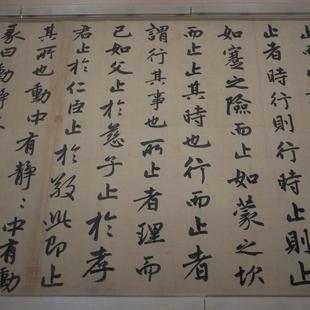 止者時行則行時止則止
如蹇之險而止如蒙之坎
而止止其時也行而止者
謂行其事也所止者理而
已如父止於慈子止於孝
君止於仁臣止於敬此即止
其所也動中有静〻中有動
彖曰動静